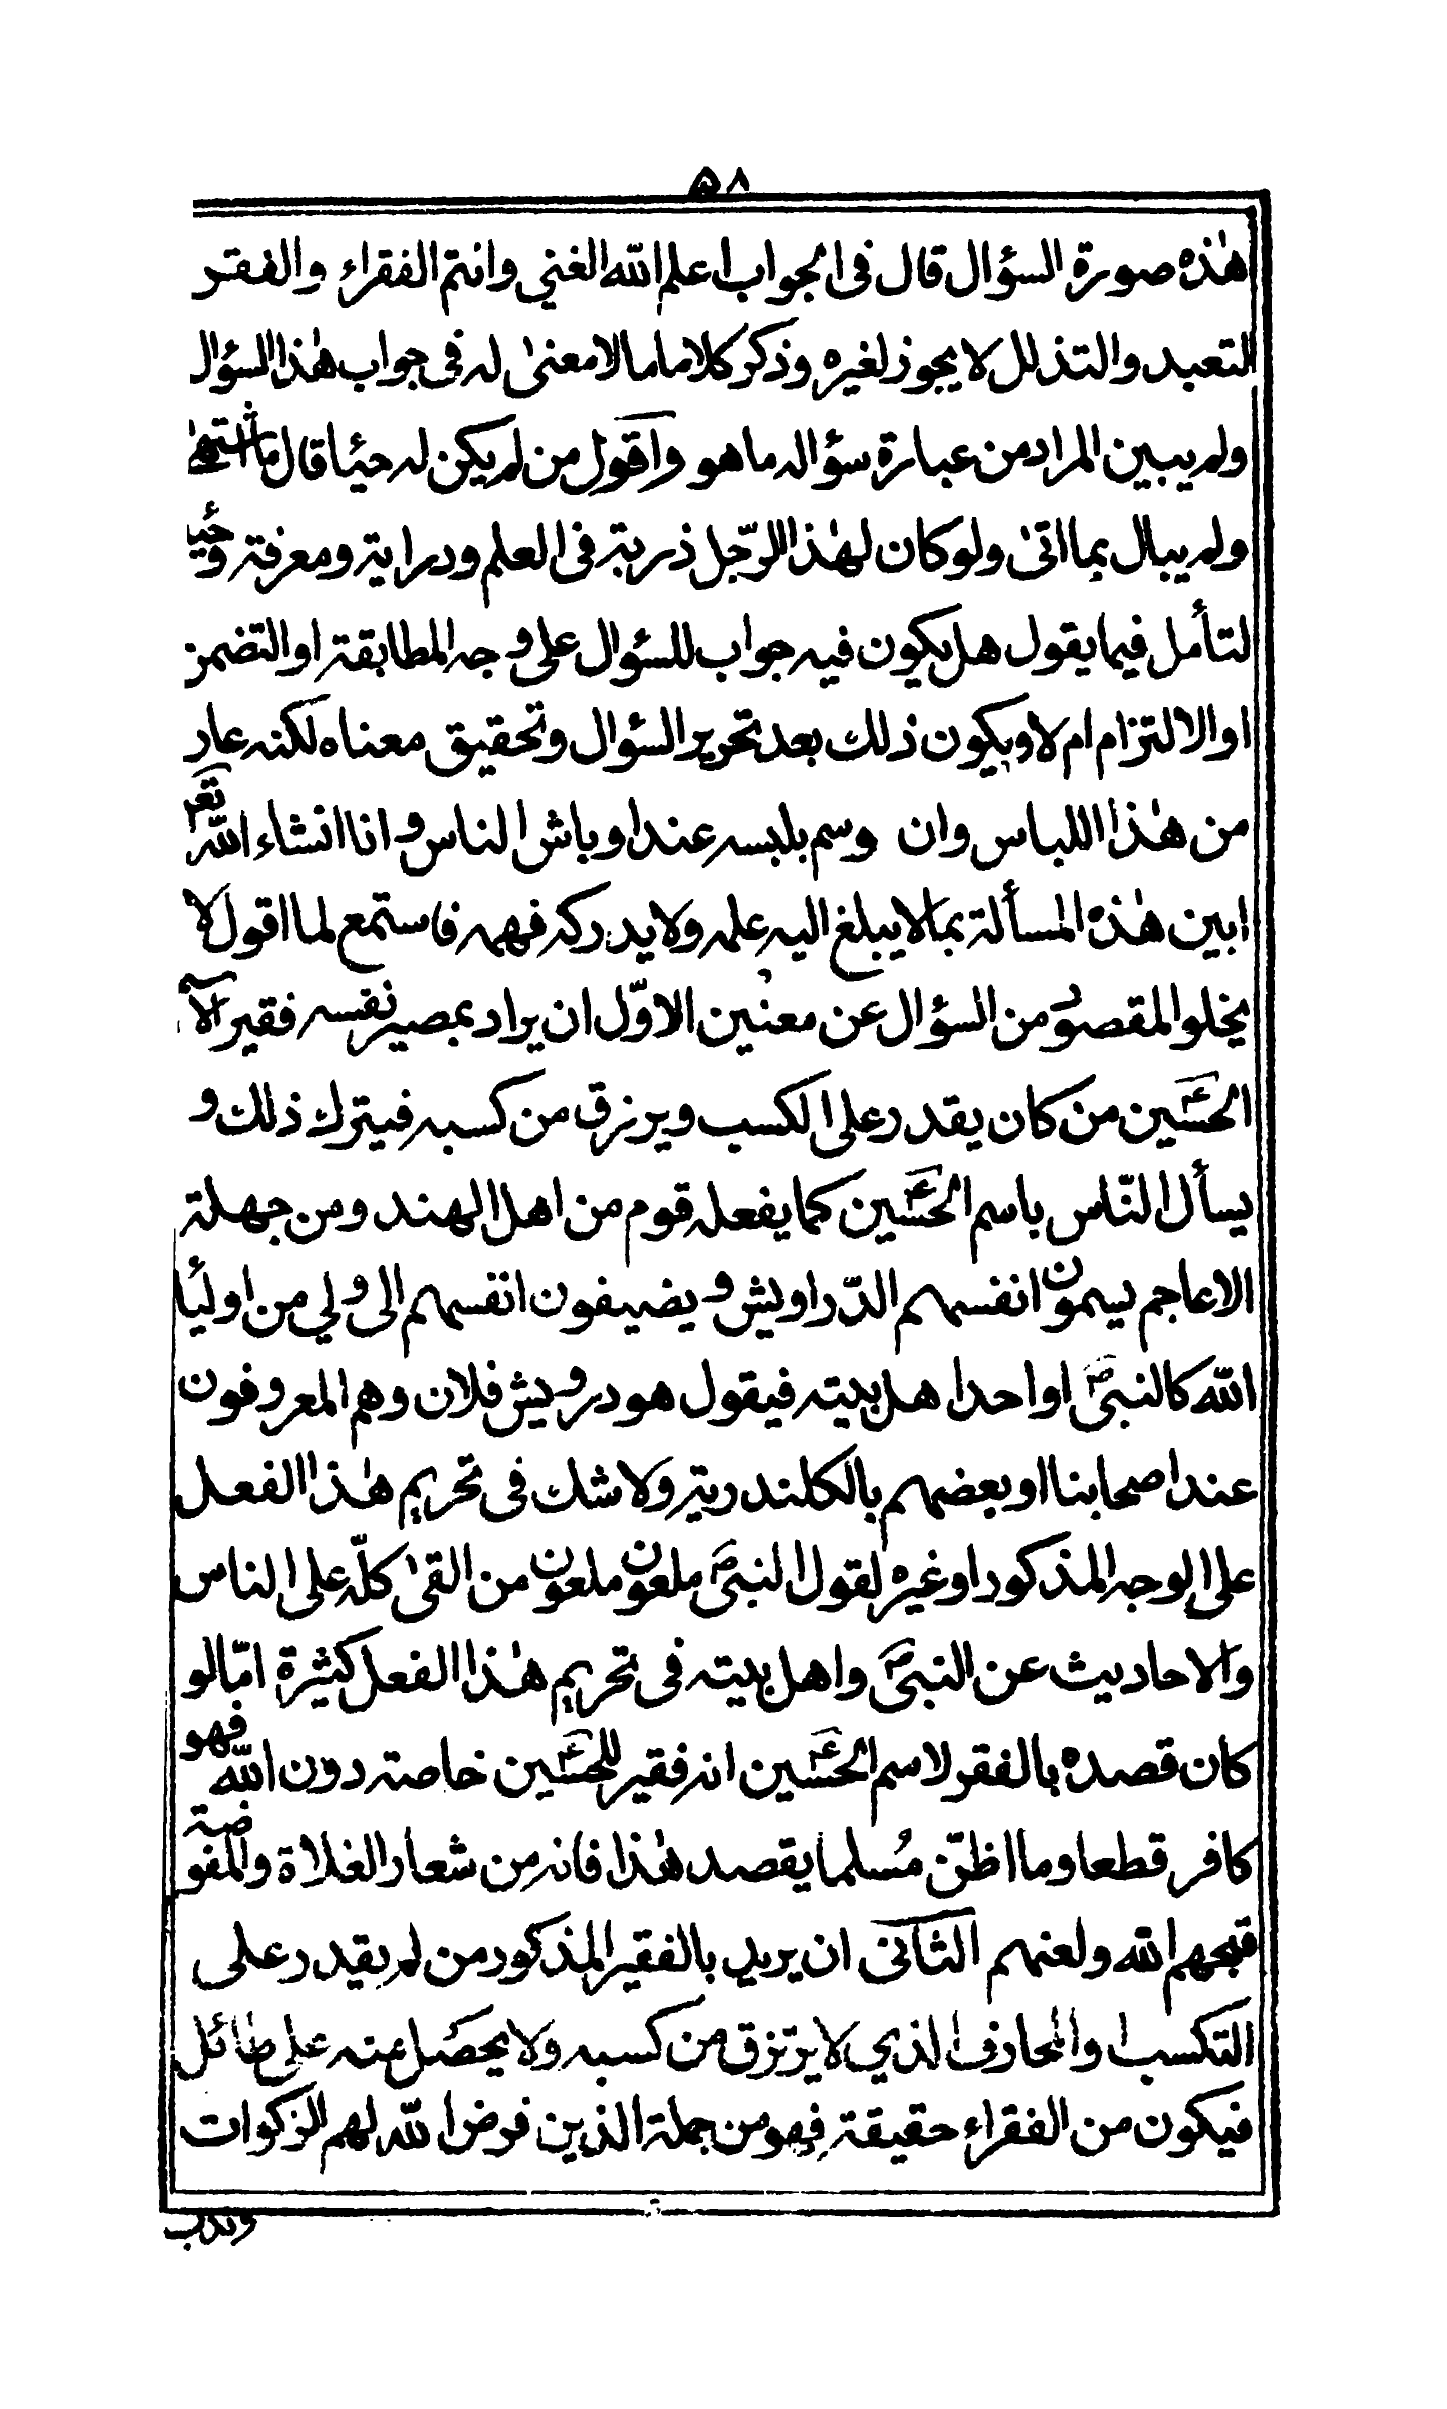 ٥٨
هٰذه صورة السؤال قال فى الجواب اعلم الله الغني وانتم الفقراء والفقر
التعبد والتذلل لا يجوز لغيره وذكر كلاما ما لا معنىٰ له فى جواب هٰذا السؤال
ولم يبين المراد من عبارة سؤاله ما هو واقول من لم يكن له حيئا قال ما اشتهىٰ
ولم يبال بما اتىٰ ولو كان لهٰذا الرّجل ذربة فى العلم ودراية ومعرفة وحيئا
لتأمل فيما يقول هل يكون فيه جواب للسؤال على وجه المطابقة او التضمن
او الالتزام ام لا ويكون ذلك بعد تحرير السؤال وتحقيق معناه لكنه عار
من هٰذا اللباس وان وسم بلبسه عند اوباش الناس و انا انشاء اللّه تعم
ابين هٰذه المسألة بما لا يبلغ اليه علمه ولا يدركه فهمه فاستمع لما اقول لا
يخلو المقصود من السؤال عن معنين الاوّل ان يراد بمصير نفسه فقير الآ
الحسين ع من كان يقدر على الكسب ويرزق من كسبه فيترك ذلك و
يسأل النّاس باسم الحسين ع كما يفعله قوم من اهل الهند ومن جهلة
الاعاجم يسمون انفسهم الدّراويش و يضيفون انفسهم الى ولي من اوليأ
اللّه كالنبى ص او احد اهل بيته فيقول هو درويش فلان وهم المعروفون
عند اصحابنا او بعضهم بالكلندرية ولا شك فى تحريم هٰذا الفعل
على الوجه المذكور او غيره لقول النبى ص ملعون ملعون من القىٰ كلّه على الناس
والاحاديث عن النبى ص واهل بيته فى تحريم هٰذا الفعل كثيرة امّا لو
كان قصده بالفقر لاسم الحسين ع انه فقير للحسين ع خاصة دون اللّه فهو
كافر قطعا وما اظنّ مُسلما يقصد هٰذا فانه من شعار الغلاة والمفوضة
قبحهم اللّه ولعنهم الثانى ان يريد بالفقير المذكور من لم يقدر على
التكسب والمحارف الذي لا يرتزق من كسبه ولا يحصل عنه على طائل
فيكون من الفقراء حقيقة فهو من جملة الذين فرض اللّه لهم الزكوات
وندب